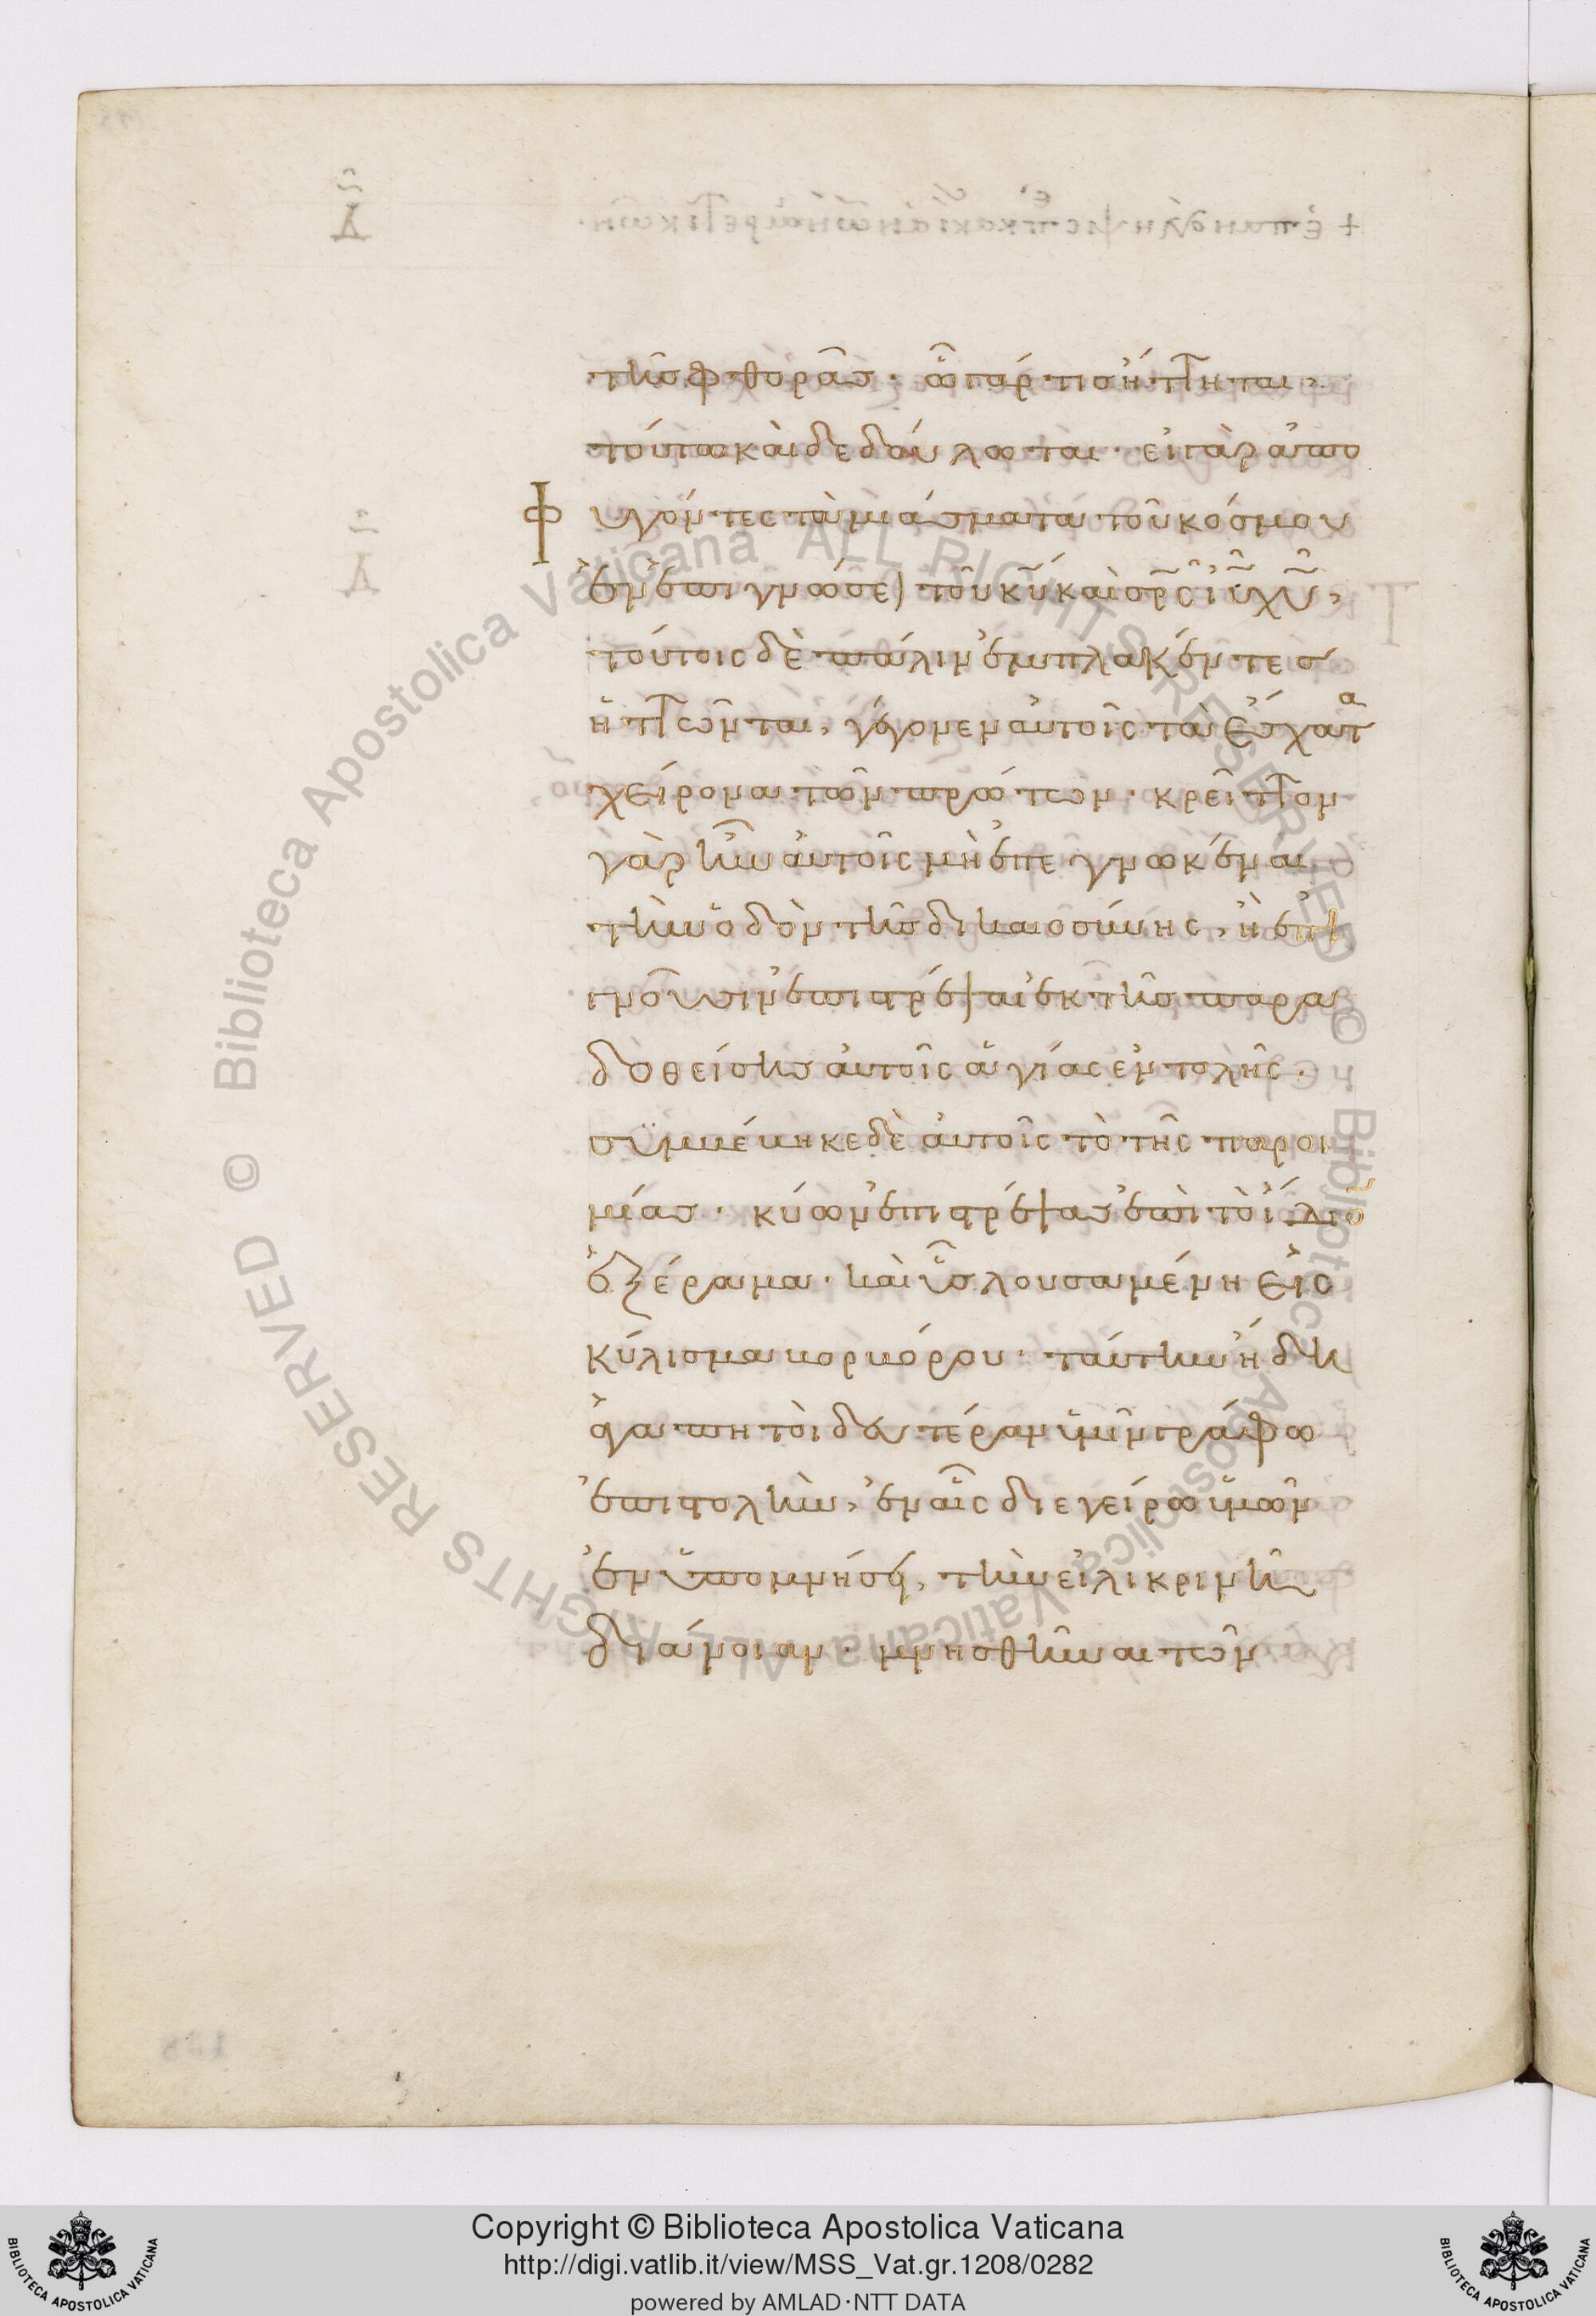 τῆς φθορᾶς· ὧ γάρ τις ἥττηται,
τούτω καὶ δεδούλωται· εἰ γὰρ ἀπο
φυγόντες τὰ μιάσματα τοῦ κόσμου
ἐν ἐπιγνώσει τοῦ κυ καὶ σρς ιυ χυ,
τούτοις δὲ πάλιν ἐμπλακέντες
ἡττῶνται, γέγονεν αὐτοῖς τὰ ἔσχατα
χείρονα τῶν πρώτων· κρεῖττον
γὰρ ἦν αὐτοῖς μὴ ἐπεγνωκέναι
τὴν ὁδὸν τῆς δικαιοσύνης, ἢ ἐπι
γνοῦσιν ἐπιστρέψαι ἐκ τῆς παρα
δοθείσης αὐτοῖς ἁγίας ἐντολῆς·
συμβέβηκε δὲ αὐτοῖς τὸ τῆς παροι
μίας· κύων ἐπιστρέψας ἐπὶ τὸ ἴδιον
ἐξέραμα· καὶ ὗς λουσαμένη εἰς
κύλισμα βορβόρου· ταύτην ἤδη
ἀγαπητοὶ δευτέραν ὑμῖν γράφω
ἐπιστολὴν, ἐν αἷς διεγείρω ὑμῶν
ἐν ὑπομνήσει, τὴν εἰλικρινῆ
διάνοιαν· μνησθῆναι τῶν
Copyright © Biblioteca Apostolica Vaticana
http://digi.vatlib.it/view/MSS_Vat.gr.1208/0282
powered by AMLAD·NTT DATA
BIBLIOTECA APOSTOLICA VATICANA
BIBLIOTECA APOSTOLICA VATICANA
© Biblioteca Apostolica Vaticana ALL RIGHTS RESERVED © Biblioteca Apostolica Vaticana ALL RIGHTS RESERVED